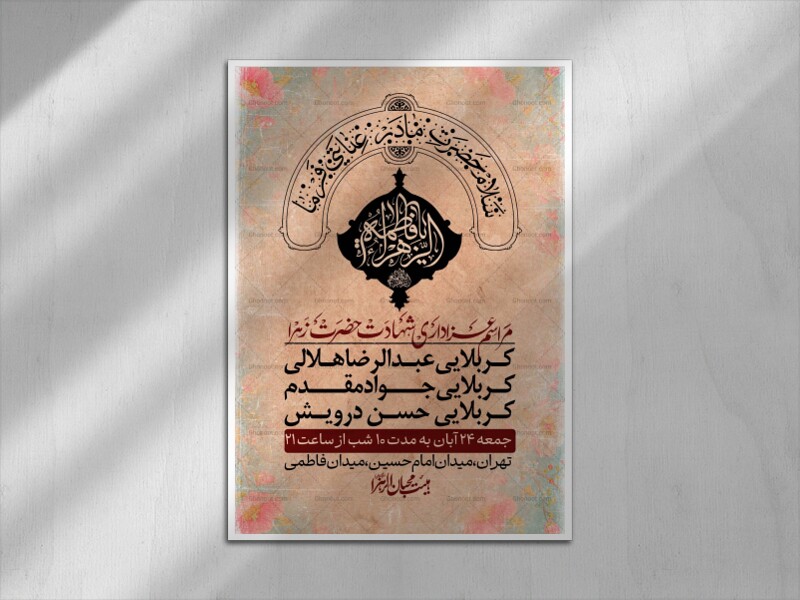 سلام حضرت مادر عنایتی بفرما
یا فاطمة الزهراء
مراسم عزاداری شهادت حضرت زهرا
کربلایی عبدالرضا هلالی
کربلایی جواد مقدم
کربلایی حسن درویش
جمعه ۲۴ آبان به مدت ۱۰ شب از ساعت ۲۱
تهران، میدان امام حسین، میدان فاطمی
هیئت محبان الزهرا